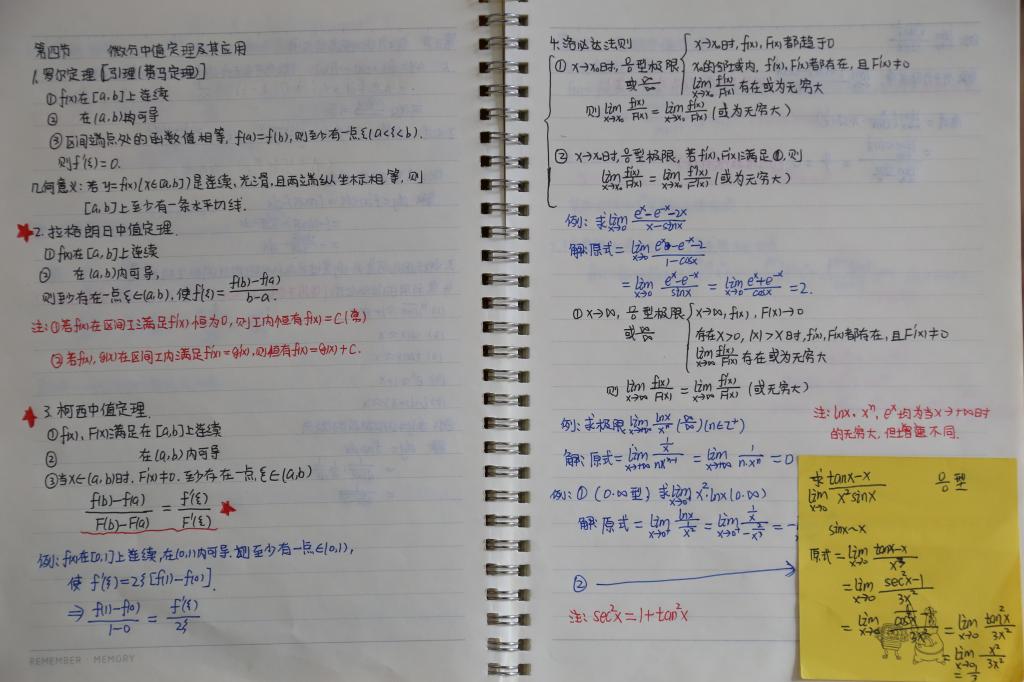 第四节 微分中值定理及其应用
1. 罗尔定理 [引理(费马定理)]
① f(x)在[a,b]上连续
② 在(a,b)内可导
③ 区间端点处的函数值相等, f(a)=f(b), 则至少有一点ξ(a<ξ<b),
则f'(ξ)=0.
几何意义: 若y=f(x)(x∈[a,b])是连续、光滑, 且两端纵坐标相等, 则
[a,b]上至少有一条水平切线.
★2. 拉格朗日中值定理.
① f(x)在[a,b]上连续
② 在(a,b)内可导,
则至少存在一点ξ∈(a,b), 使f'(ξ)=\frac{f(b)-f(a)}{b-a}.
注: ①若f(x)在区间I上满足f'(x)恒为0, 则I内恒有f(x)=C(常)
②若f(x), g(x)在区间I内满足f'(x)=g'(x), 则恒有f(x)=g(x)+C.
★3. 柯西中值定理.
① f(x), F(x)满足在[a,b]上连续
② 在(a,b)内可导
③当x∈(a,b)时, F'(x)≠0. 至少存在一点, ξ∈(a,b)
\frac{f(b)-f(a)}{F(b)-F(a)} = \frac{f'(ξ)}{F'(ξ)} ★
例: f(x)在[0,1]上连续, 在(0,1)内可导. 则至少有一点∈(0,1),
使 f'(ξ)=2ξ[f(1)-f(0)].
⇒ \frac{f(1)-f(0)}{1-0} = \frac{f'(ξ)}{2ξ}
REMEMBER · MEMORY
4. 洛必达法则
① x→x₀时, \frac{0}{0}型极限 或\frac{∞}{∞}
x→x₀时, f(x), F(x)都趋于0
x₀的邻域内, f'(x), F'(x)都存在, 且F'(x)≠0
\lim_{x→x₀}\frac{f'(x)}{F'(x)}存在或为无穷大
则\lim_{x→x₀}\frac{f(x)}{F(x)} = \lim_{x→x₀}\frac{f'(x)}{F'(x)} (或为无穷大)
② x→x₀时, \frac{0}{0}型极限, 若f'(x), F'(x)满足①, 则
\lim_{x→x₀}\frac{f'(x)}{F'(x)} = \lim_{x→x₀}\frac{f''(x)}{F''(x)} (或为无穷大)
例: 求\lim_{x→0}\frac{e^x-e^{-x}-2x}{x-sinx}
解: 原式=\lim_{x→0}\frac{e^x+e^{-x}-2}{1-cosx}
=\lim_{x→0}\frac{e^x-e^{-x}}{sinx} = \lim_{x→0}\frac{e^x+e^{-x}}{cosx} = 2.
① x→∞, \frac{0}{0}型极限 或\frac{∞}{∞}
x→∞, f(x), F(x)→0
存在X>0, |x|>X时, f'(x), F'(x)都存在, 且F'(x)≠0
\lim_{x→∞}\frac{f'(x)}{F'(x)}存在或为无穷大
则 \lim_{x→∞}\frac{f(x)}{F(x)} = \lim_{x→∞}\frac{f'(x)}{F'(x)} (或无穷大)
注: lnx, x^n, e^x均为当x→+∞时
的无穷大, 但增速不同.
例: 求极限\lim_{x→+∞}\frac{lnx}{x^n}(\frac{∞}{∞})(n∈Z⁺)
解: 原式=\lim_{x→+∞}\frac{\frac{1}{x}}{nx^{n-1}} = \lim_{x→+∞}\frac{1}{n·x^n} = 0
例: ① (0·∞型) 求\lim_{x→0⁺}x²·lnx(0·∞)
解: 原式=\lim_{x→0⁺}\frac{lnx}{\frac{1}{x²}} = \lim_{x→0⁺}\frac{\frac{1}{x}}{-\frac{2}{x³}} = -
②
注: sec²x=1+tan²x
求\lim_{x→0}\frac{tanx-x}{x²sinx} \frac{0}{0}型
sinx~x
原式=\lim_{x→0}\frac{tanx-x}{x³}
=\lim_{x→0}\frac{sec²x-1}{3x²}
=\lim_{x→0}\frac{tan²x}{3x²}
=\lim_{x→0}\frac{x²}{3x²}
=\frac{1}{3}